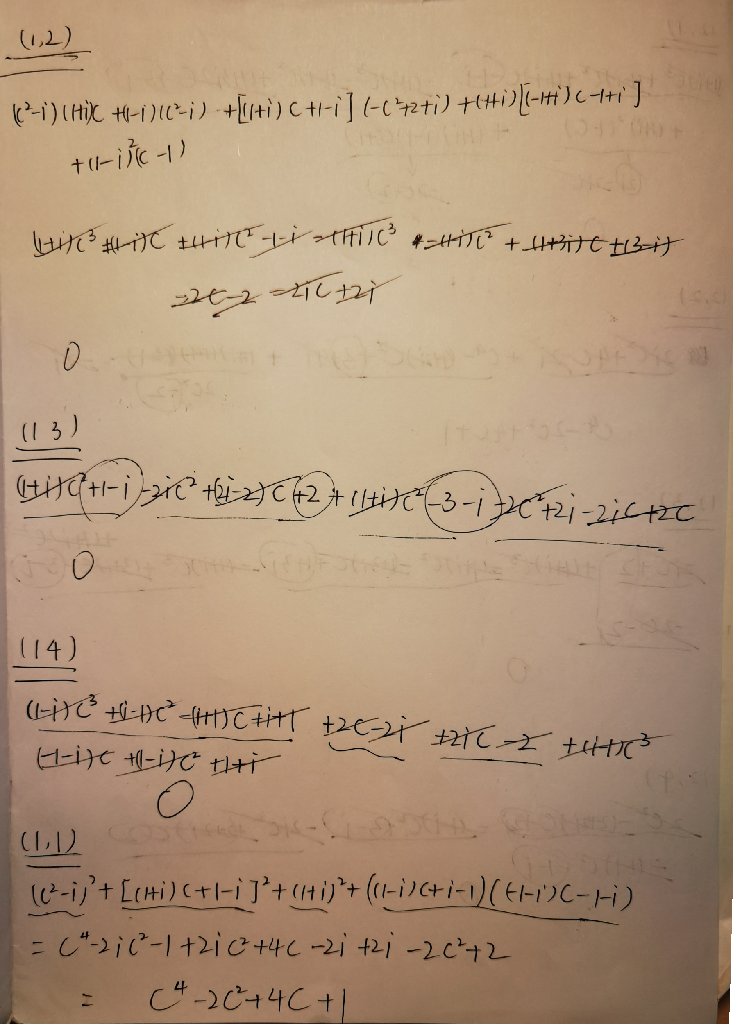 (1,2)
(c²-i)(1+i)c+(1-i)(c²-i)+[(1+i)c+1-i](-c²+2+i)+(1+i)[(-1+i)c-1+i]
+(1-i)²(c-1)
(1+i)c³+(1-i)c+(1-i)c²-1-i-(1+i)c³-(1-i)c²+(1+3i)c+(3-i)
-2c-2-2ic+2i
0
(13)
(1+i)c²+1-i-2ic²+(2i-2)c+2+(1+i)c²-3-i-2c²+2i-2ic+2c
0
(14)
(1-i)c³+(i-1)c²-(1+i)c+i+1+2c-2i+2ic-2+(i-1)c³
(-1-i)c+(1-i)c²+1+i
0
(1,1)
(c²-i)²+[(1+i)c+1-i]²+(1+i)²+((1-i)c+i-1)((-1-i)c-1-i)
= c⁴-2ic²-1+2ic²+4c-2i+2i-2c²+2
= c⁴-2c²+4c+1